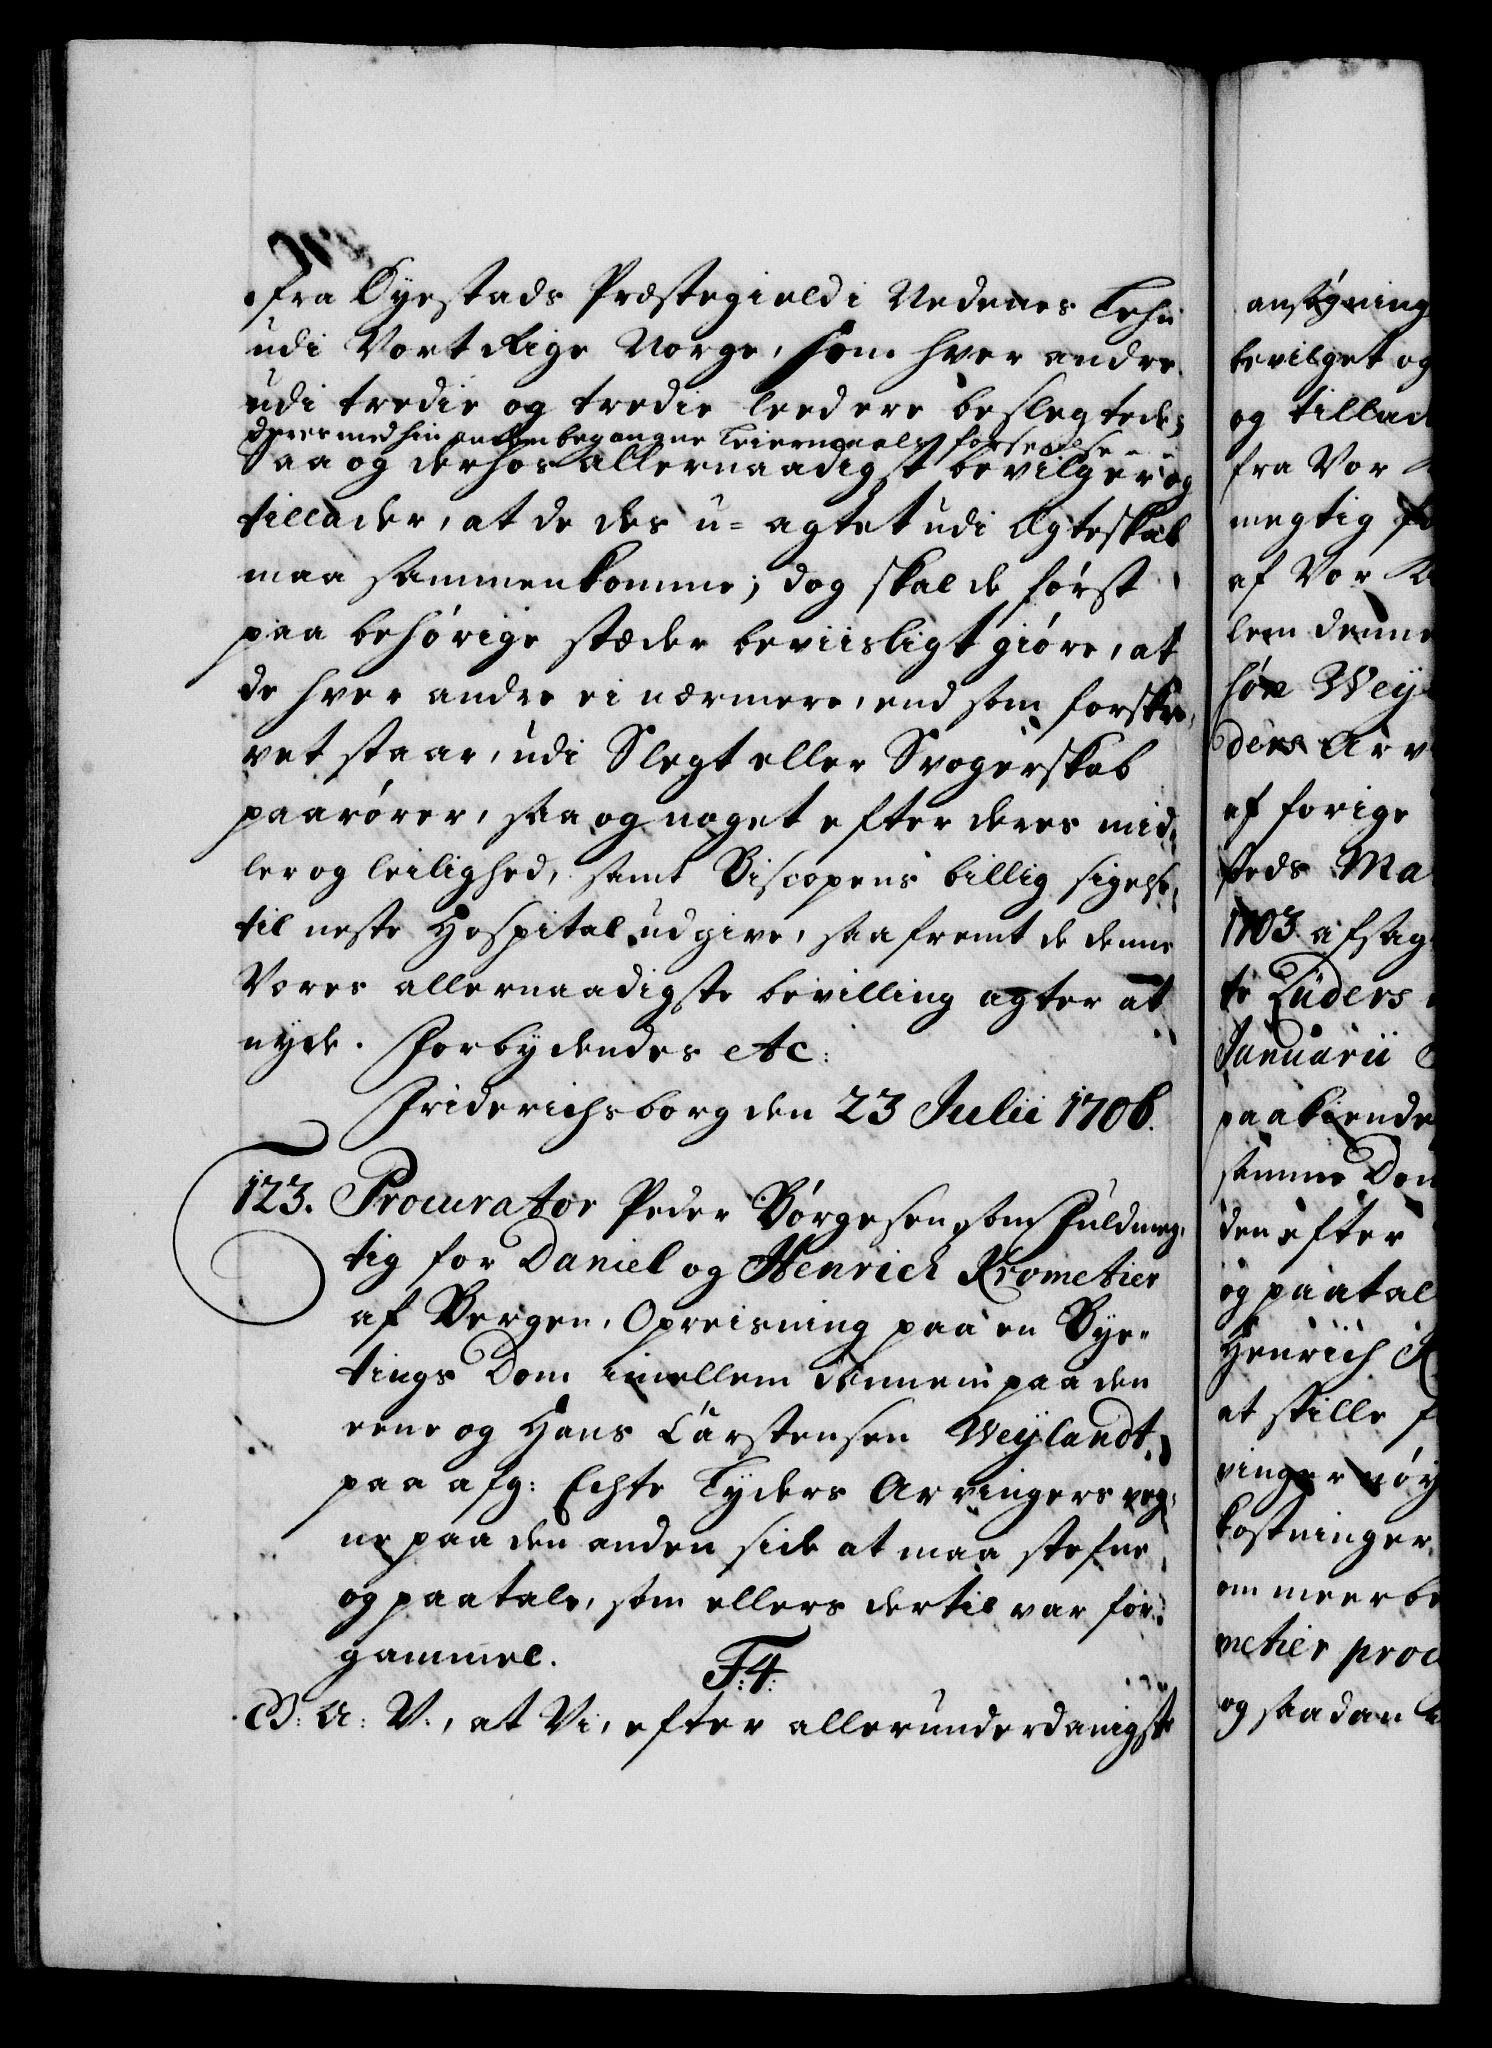 fra Øyestads Præstegield i Nedenes Lehn
udi Vort Rige Norge, som hver andre
udi tredie og tredie leed ere beslegtede,
deres med hin anden begangne Leiermaals forseelse
Saa og derhos allernaadigst bevilger og
tillader, at de des u-agtet udi Ægteskab
maa sammenkomme; dog skal de først
paa behørige stæder beviisligt giøre, at
de hver andre ei nærmere, end som forskre-
vet staar, udi Slegt eller Svogerskab
paarører, saa og noget efter deres mid-
ler og leilighed, samt Biscopens billig sigelse,
til neste Hospital udgive, saafremt de denne
Vores allernaadigste bevilling agter at
nyde. Forbydendes etc:
Friderichsborg den 23 Julii 1706.
123. Procurator Peder Børgesen, som Fuldmeg-
tig for Daniel og Henrich Krometier
af Bergen, Opreisning paa en Bye-
tings Dom imellem dennem paa den
eene og Hans Carstensen Weylandt
paa afg: Echte Lyders Arvingers veg-
ne paa den anden side at maa stefne
og paatale, som ellers dertil var for
gammel.
F: 4:
G: A: V:, at Vi, efter allerunderdanigste
ansøgning
bevilget og
og tillad
fra Vor
megtig
af Vor
lem denne
høre Wey
ders Arv
af forige
steds Ma
1703 afsag
te Lüders
Januarii
paakiende
samme Dom
den efter
og paatal
Henrich K
at stille f
vinger nøy
kostninger
om meerbe
metier proc
og saadan